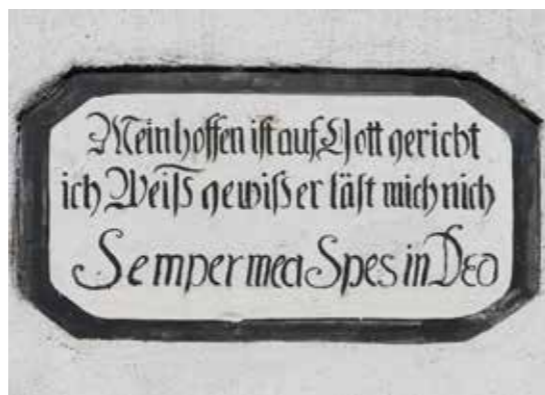 Mein hoffen ist auf Gott gericht
ich Weiß gewiß er läst mich nich
Semper mea Spes in Deo